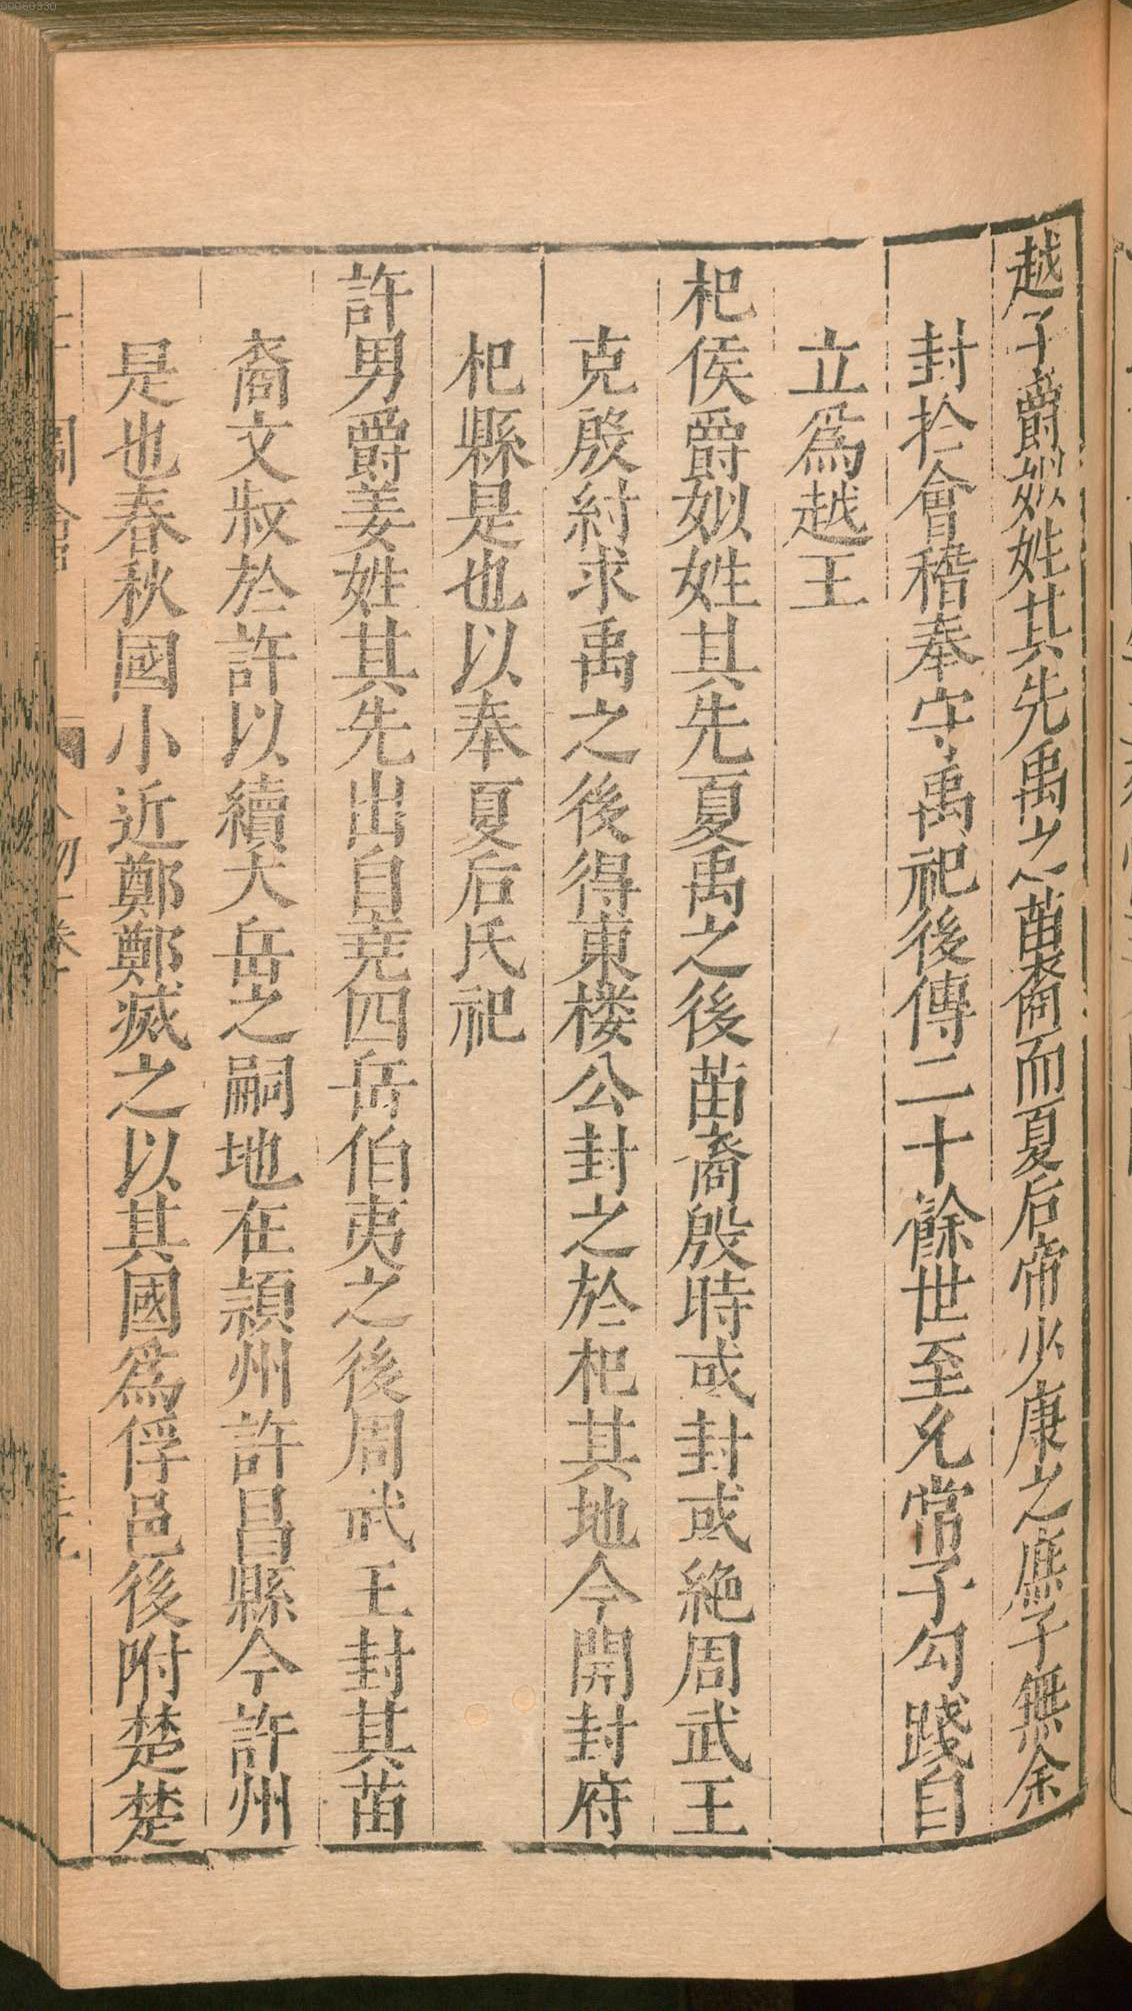 00060330
越子爵姒姓其先禹之苗裔而夏后帝少康之庶子無余
封於會稽奉守禹祀後傳二十餘世至允常子勾踐自
立爲越王
杞侯爵姒姓其先夏禹之後苗裔殷時或封或絶周武王
克殷紂求禹之後得東楼公封之於杞其地今開封府
杞縣是也以奉夏后氏祀
許男爵姜姓其先出自尭四岳伯夷之後周武王封其苗
裔文叔於許以續大岳之嗣地在頴州許昌縣今許州
是也春秋國小近鄭鄭滅之以其國爲俘邑後附楚楚